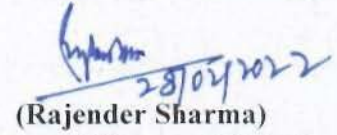 28/04/2022
(Rajender Sharma)